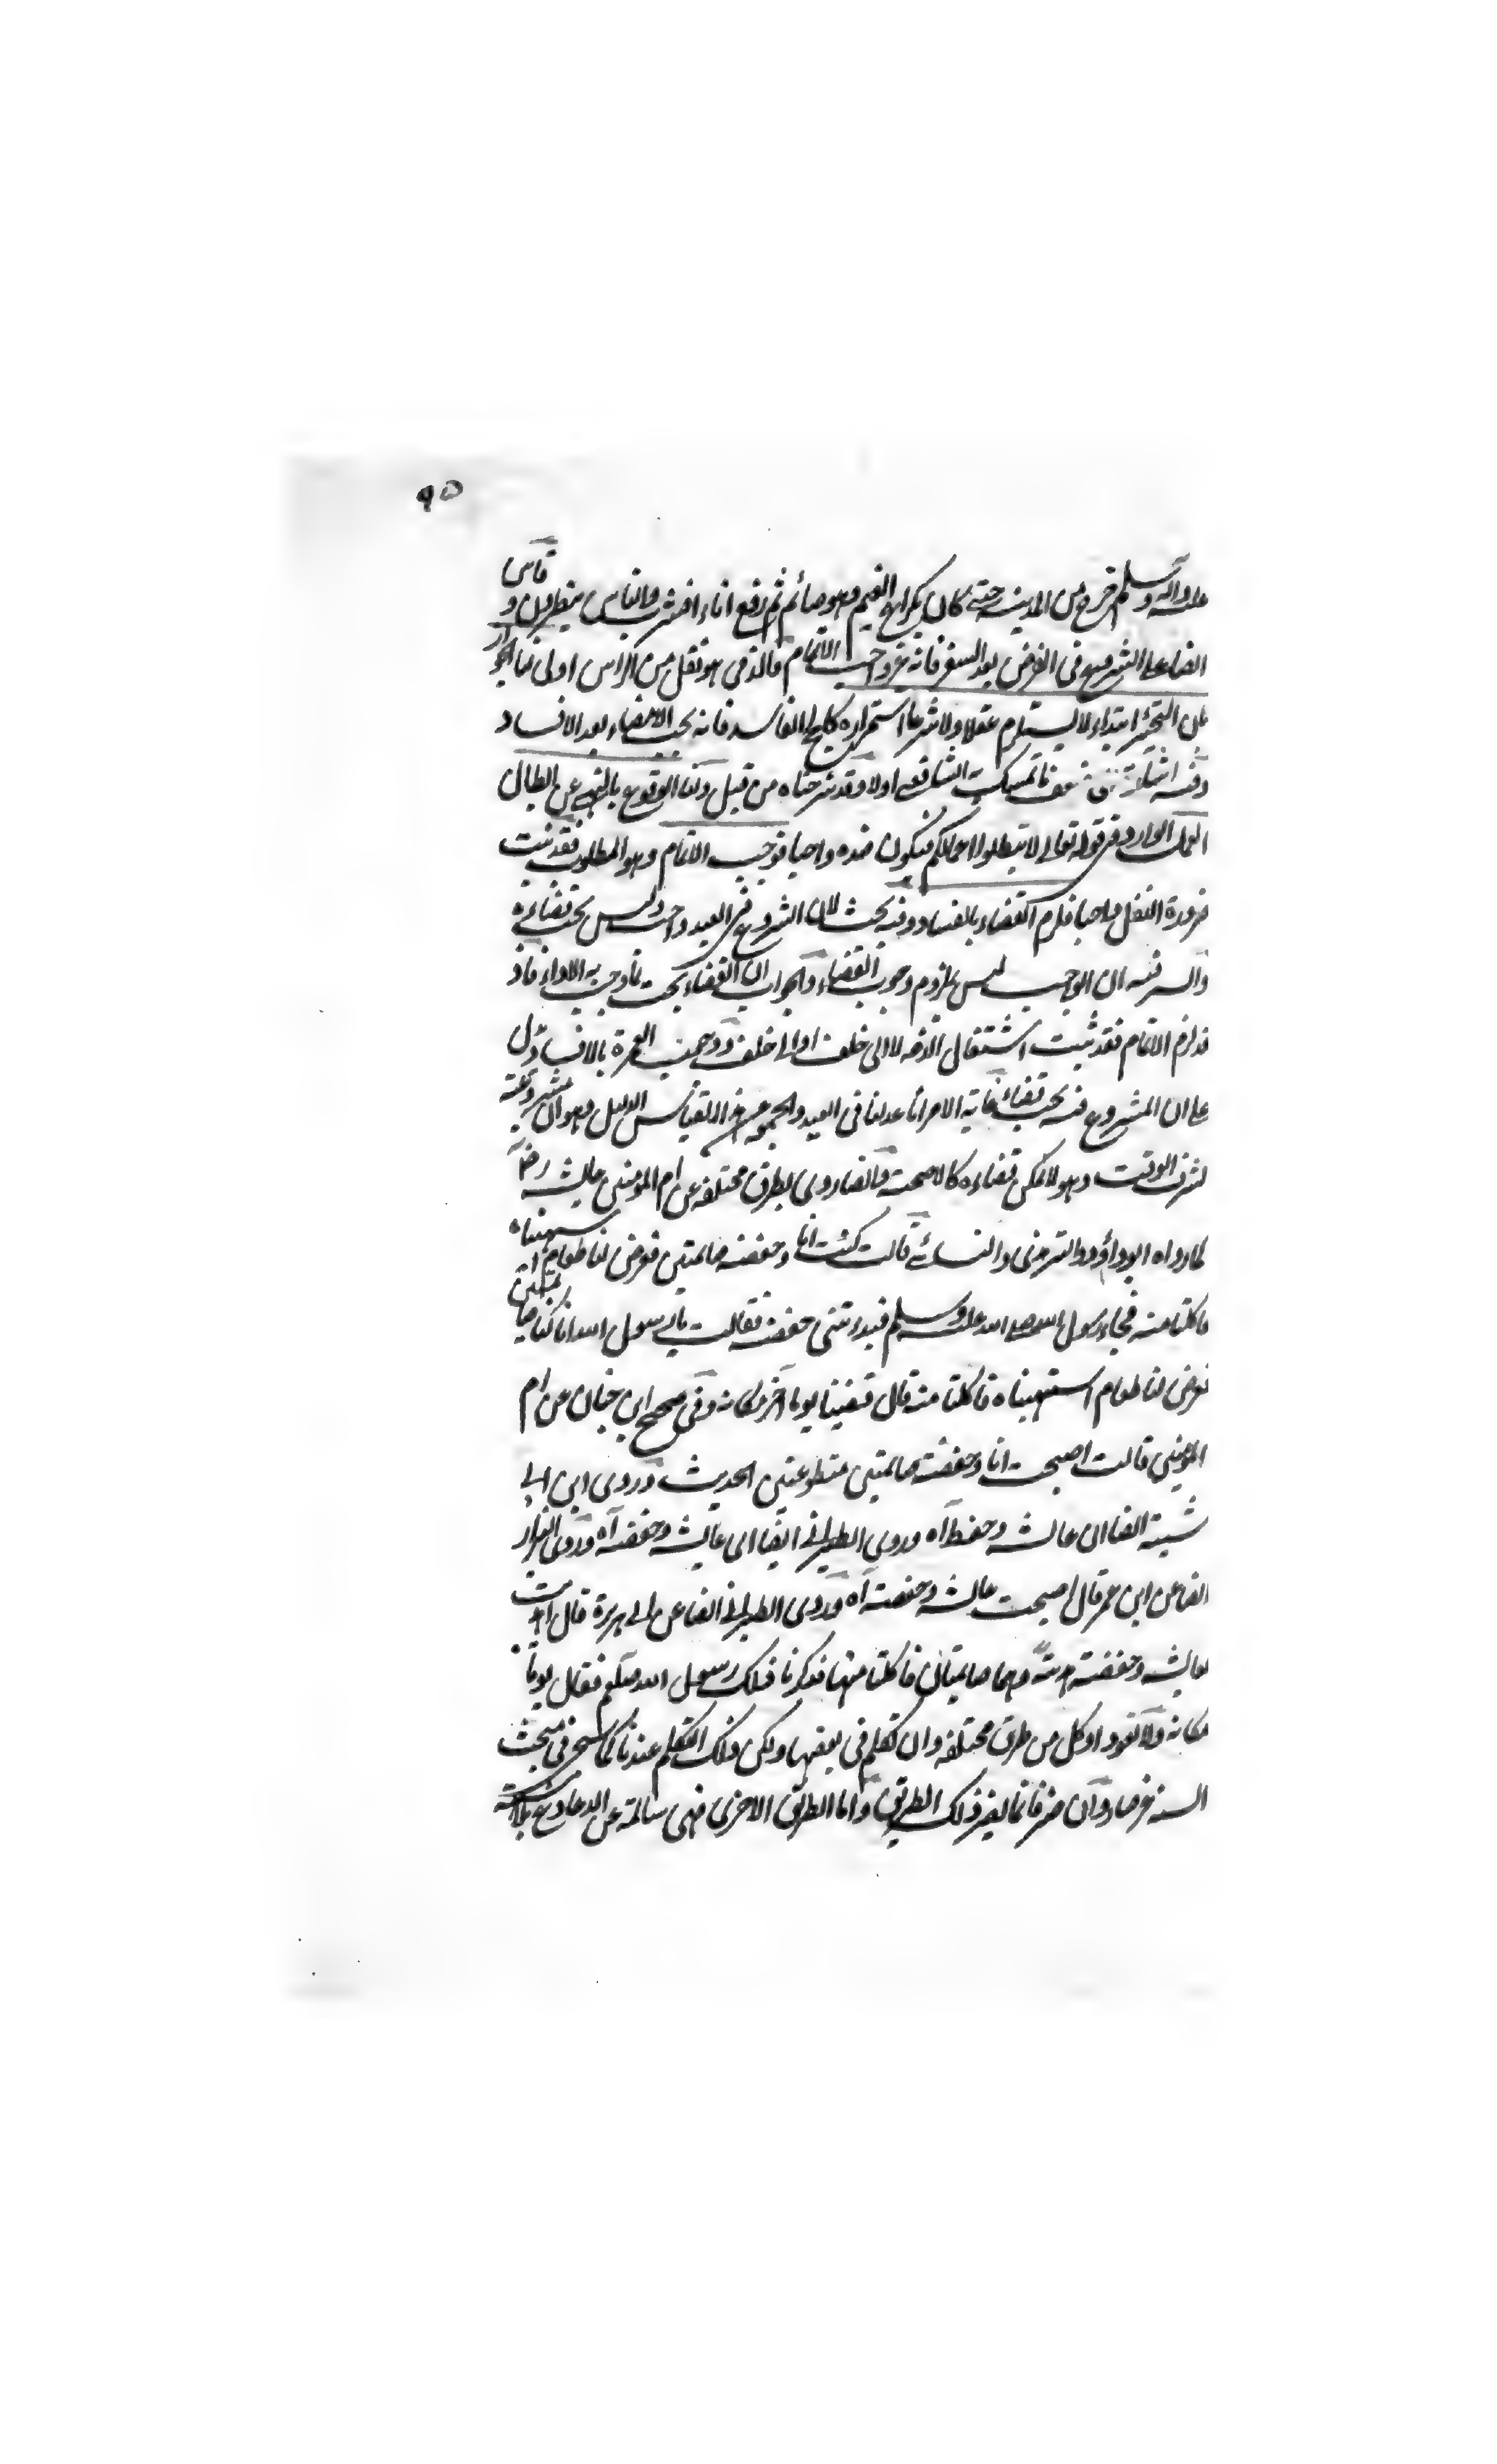 ٩٥
عليه وآله وسلم خرج من المدينة حتى كان بكراع الغميم وهو صائم ثم رفع اناء فشرب والناس ينظرون و قاس
ايضا على الشروع في الفرض بعد السفر فانه غير واجب الاتمام فالذي هو نفل من الراس اولى قلنا الجواز
على التخير ابتداء لا يستلزم عقلا ولا شرعا استمراره كالحج الفاسد فانه يجب الامضاء بعد الافساد
وفيه اشارة تمسك به الشافعي اولا وقد شرحناه من قبل ولنا الوقوع بالنهي عن ابطال
العمل الوارد في قوله تعالى لا تبطلوا اعمالكم فيكون ضده واجبا فوجب الاتمام وهو المطلوب فقد ثبت
ضرورة النفل واجبا فلزم القضاء بالفساد وفيه بحث لان الشروع في العيد واجب وليس يجب قضاءه
والسر فيه ان الوجوب ليس ملزوم وجوب القضاء والجواب ان القضاء يجب بما وجب به الاداء فاذ
قد لزم الاتمام فقد ثبت اشتغال الذمة لا الى خلف او الى خلف ووجوب العمرة بالافساد دل
على ان المشروع فيه يجب قضاءه غاية الامر انا عدلنا في العيد والجمعة عن هذا القياس الدليل وهو ان مشروعيته
لشرف الوقت وهو لا يمكن قضاءه كالاضحية وايضا روى بطرق مختلفة عن ام المؤمنين عايشة رض
كما رواه ابو داؤد والترمذي والنسائي قالت كنت انا وحفصة صائمتين فعرض لنا طعام اشتهيناه
فاكلنا منه فجاء رسول الله صلى الله عليه وسلم فبدرتني حفصة فقالت يا رسول الله انا كنا صائمتين
فعرض لنا طعام اشتهيناه فاكلنا منه قال قضينا يوما آخر مكانه وفي صحيح ابن حبان عن ام
المؤمنين قالت اصبحت انا وحفصة صائمتين متطوعتين الحديث وروى ابن ابي
شيبة ايضا ان عايشة وحفصة آه وروى الطبراني ايضا ان عايشة وحفصة آه وروى البزار
ايضا عن ابن عمر قال اصبحت عايشة وحفصة آه وروى الطبراني ايضا عن ابي هريرة قال اهديت
لعايشة وحفصة هدية وهما صايمتان فاكلتا منها فذكرنا ذلك رسول الله صلعم فقال يوما
مكانه ولا تعودا وكل من طرق مختلفة وان تكلم في بعضها ولكن ذلك التكلم عندنا كما سيجئ في مبحث
السنة غير ضار وان ضر فانما يضر ذلك الطريق واما الطريق الاخرى فهي سالمة عن